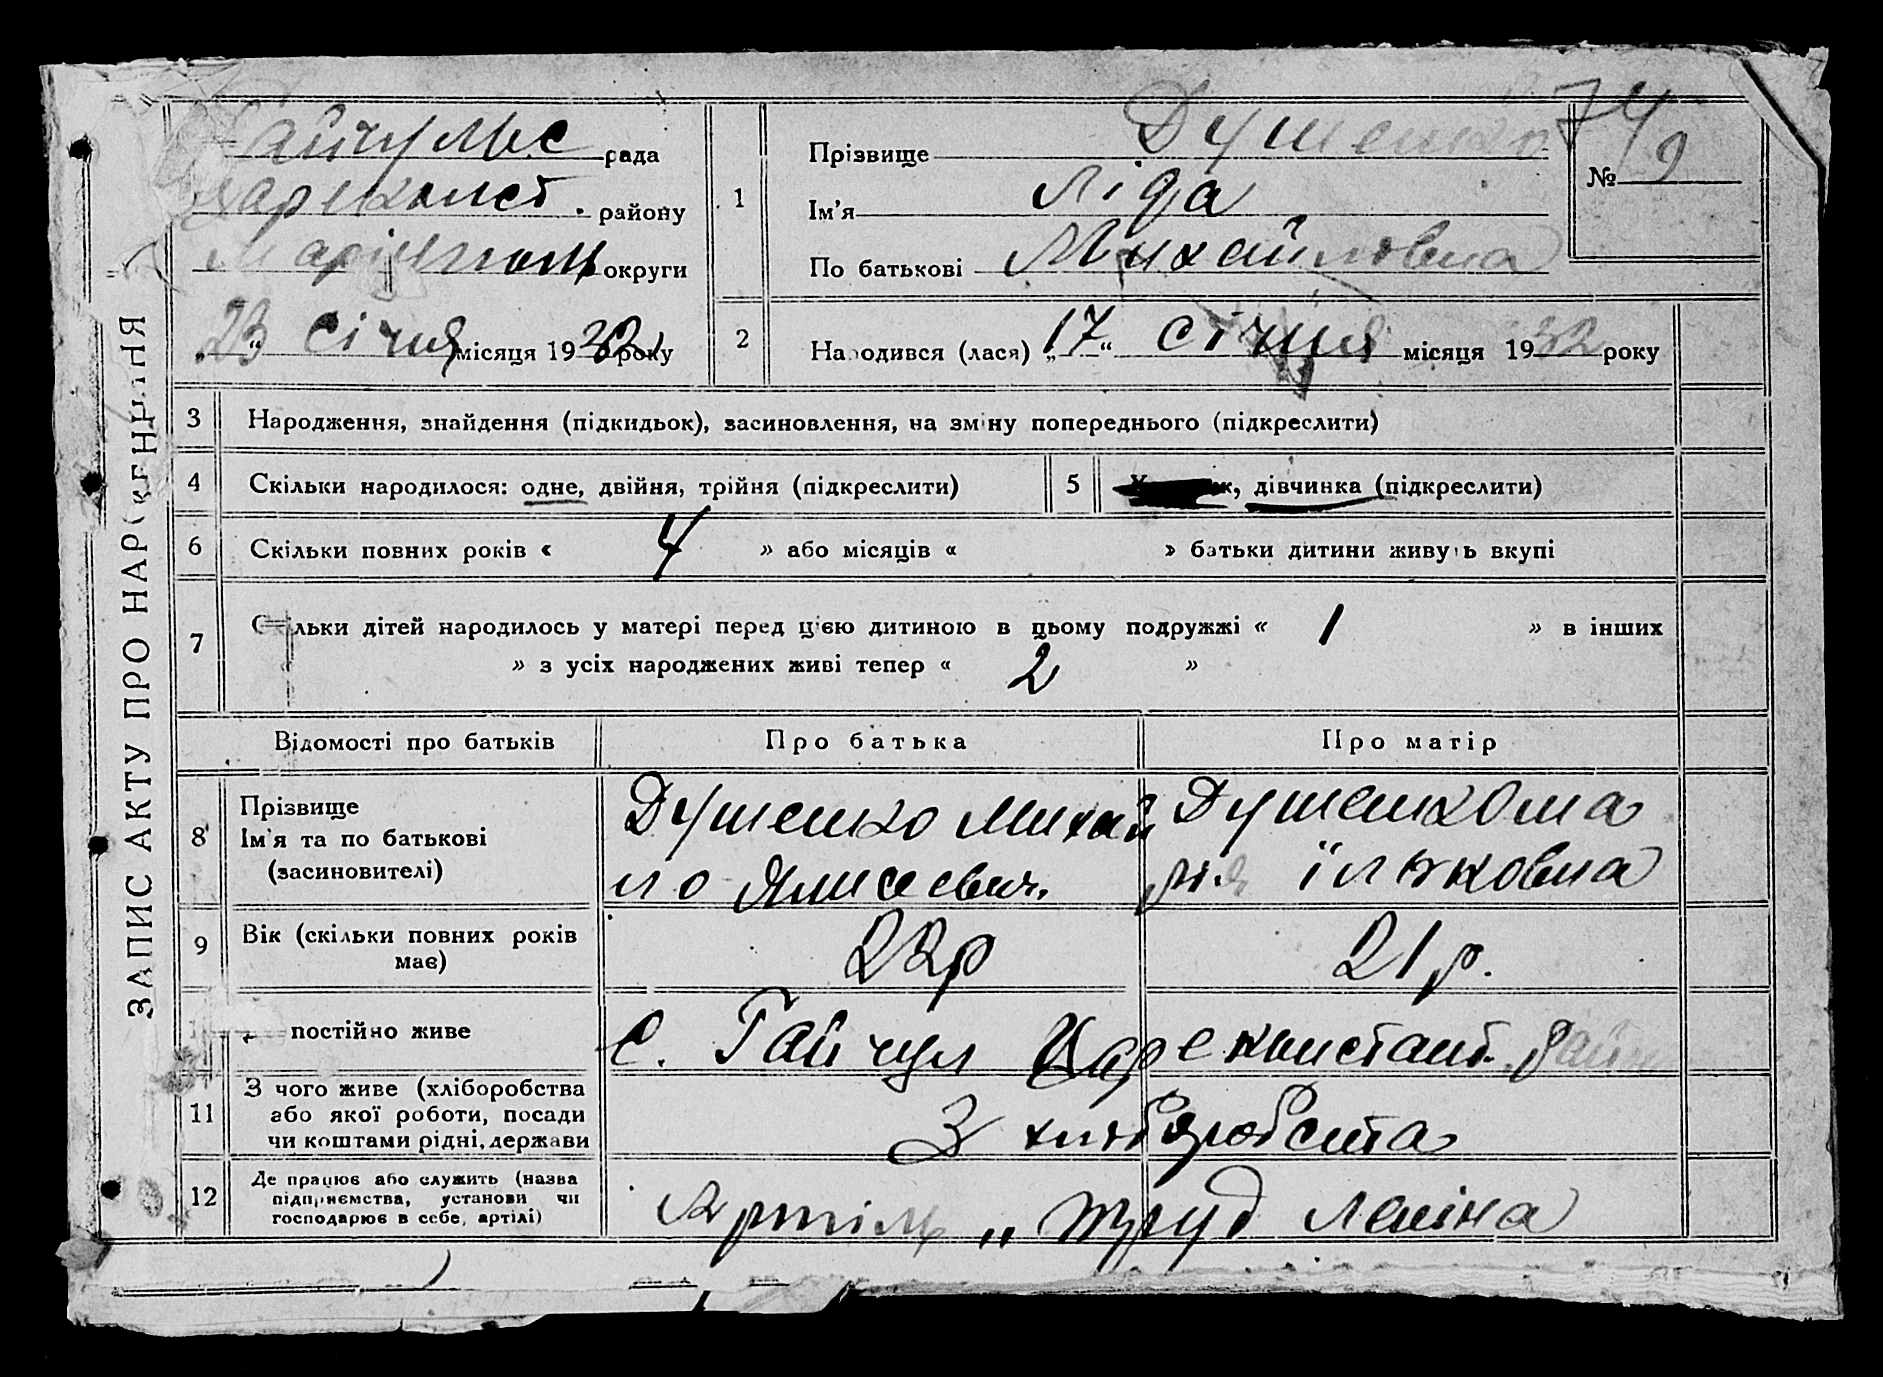 ЗАПИС АКТУ ПРО НАРОДЖЕННЯ
Гайчульс рада
Царекэнст. району
Маріупол округи
„23“ січня місяця 1932 року
1 Прізвище Душенко
Ім'я Ліда
По батькові Михайловна
№ 9
74
2 Народився (лася) „17“ січня місяця 1932 року
3 Народження, знайдення (підкидьок), засиновлення, на зміну попереднього (підкреслити)
4 Скільки народилося: одне, двійня, трійня (підкреслити)
5 дівчинка (підкреслити)
6 Скільки повних років « 4 » або місяців « » батьки дитини живуть вкупі
7 Скільки дітей народилось у матері перед цією дитиною в цьому подружжі « 1 » в інших
» з усіх народжених живі тепер « 2 »
Відомості про батьків Про батька Про матір
8 Прізвище
Ім'я та по батькові
(засиновителі)
Душенко Михай
лоЯлисеевич.
Душенко Ма
рія Їльковна
9 Вік (скільки повних років
має)
22р
21р.
постійно живе
с. Гайчул Цареконстант. рай
11 З чого живе (хліборобства
або якої роботи, посади
чи коштами рідні, держави
З хлібороб��тва
12 Де працює або служить (назва
підприємства, установи чи
господарює в себе, артілі)
Артіль „Труд Леніна